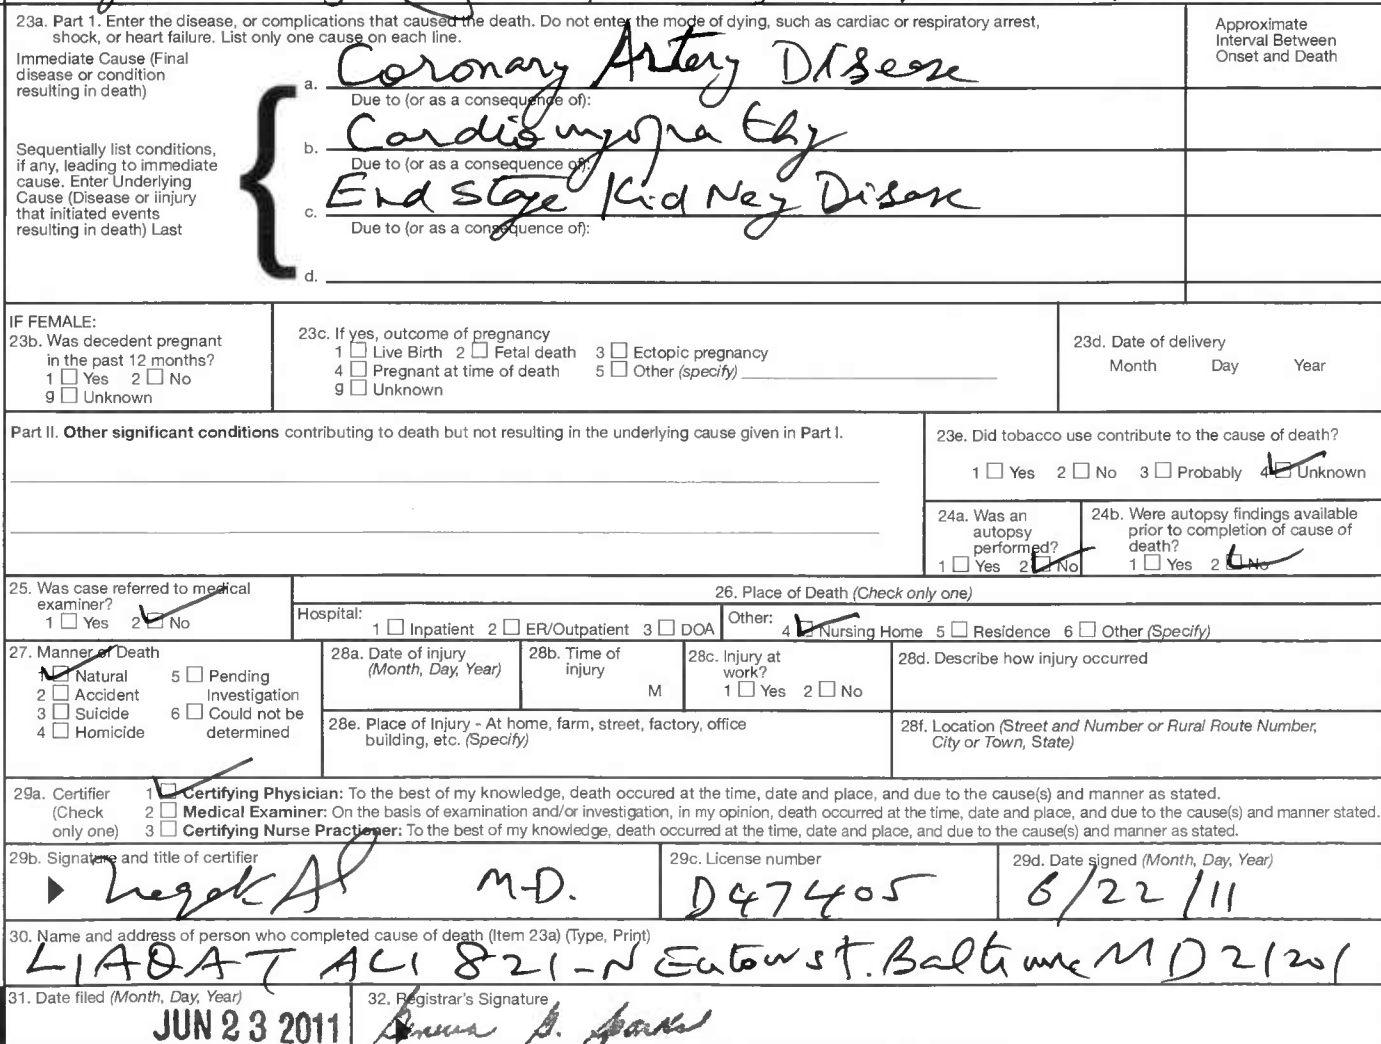 23a. Part 1. Enter the disease, or complications that caused the death. Do not enter the mode of dying, such as cardiac or respiratory arrest,
shock, or heart failure. List only one cause on each line.
Approximate
Interval Between
Onset and Death
Immediate Cause (Final
disease or condition
resulting in death)
a. Coronary Artery Disease
Due to (or as a consequence of):
Sequentially list conditions,
if any, leading to immediate
cause. Enter Underlying
Cause (Disease or iinjury
that initiated events
resulting in death) Last
b. Cardiomyopathy
Due to (or as a consequence of):
c. End Stage Kidney Disease
Due to (or as a consequence of):
d.
IF FEMALE:
23b. Was decedent pregnant
in the past 12 months?
1 ☐ Yes 2 ☐ No
9 ☐ Unknown
23c. If yes, outcome of pregnancy
1 ☐ Live Birth 2 ☐ Fetal death 3 ☐ Ectopic pregnancy
4 ☐ Pregnant at time of death 5 ☐ Other (specify)
9 ☐ Unknown
23d. Date of delivery
Month Day Year
Part II. Other significant conditions contributing to death but not resulting in the underlying cause given in Part I.
23e. Did tobacco use contribute to the cause of death?
1 ☐ Yes 2 ☐ No 3 ☐ Probably 4 ☑ Unknown
24a. Was an
autopsy
performed?
1 ☐ Yes 2 ☑ No
24b. Were autopsy findings available
prior to completion of cause of
death?
1 ☐ Yes 2 ☑ No
25. Was case referred to medical
examiner?
1 ☐ Yes 2 ☑ No
26. Place of Death (Check only one)
Hospital: 1 ☐ Inpatient 2 ☐ ER/Outpatient 3 ☐ DOA
Other: 4 ☑ Nursing Home 5 ☐ Residence 6 ☐ Other (Specify)
27. Manner of Death
1 ☑ Natural 5 ☐ Pending
2 ☐ Accident Investigation
3 ☐ Suicide 6 ☐ Could not be
4 ☐ Homicide determined
28a. Date of injury
(Month, Day, Year)
28b. Time of
injury
M
28c. Injury at
work?
1 ☐ Yes 2 ☐ No
28d. Describe how injury occurred
28e. Place of Injury - At home, farm, street, factory, office
building, etc. (Specify)
28f. Location (Street and Number or Rural Route Number,
City or Town, State)
29a. Certifier
(Check
only one)
1 ☑ Certifying Physician: To the best of my knowledge, death occured at the time, date and place, and due to the cause(s) and manner as stated.
2 ☐ Medical Examiner: On the basis of examination and/or investigation, in my opinion, death occurred at the time, date and place, and due to the cause(s) and manner stated.
3 ☐ Certifying Nurse Practioner: To the best of my knowledge, death occurred at the time, date and place, and due to the cause(s) and manner as stated.
29b. Signature and title of certifier
M.D.
29c. License number
D47405
29d. Date signed (Month, Day, Year)
6/22/11
30. Name and address of person who completed cause of death (Item 23a) (Type, Print)
LIAQAT ALI 821-N Eutow st. Baltimre MD 21201
31. Date filed (Month, Day, Year)
JUN 23 2011
32. Registrar's Signature